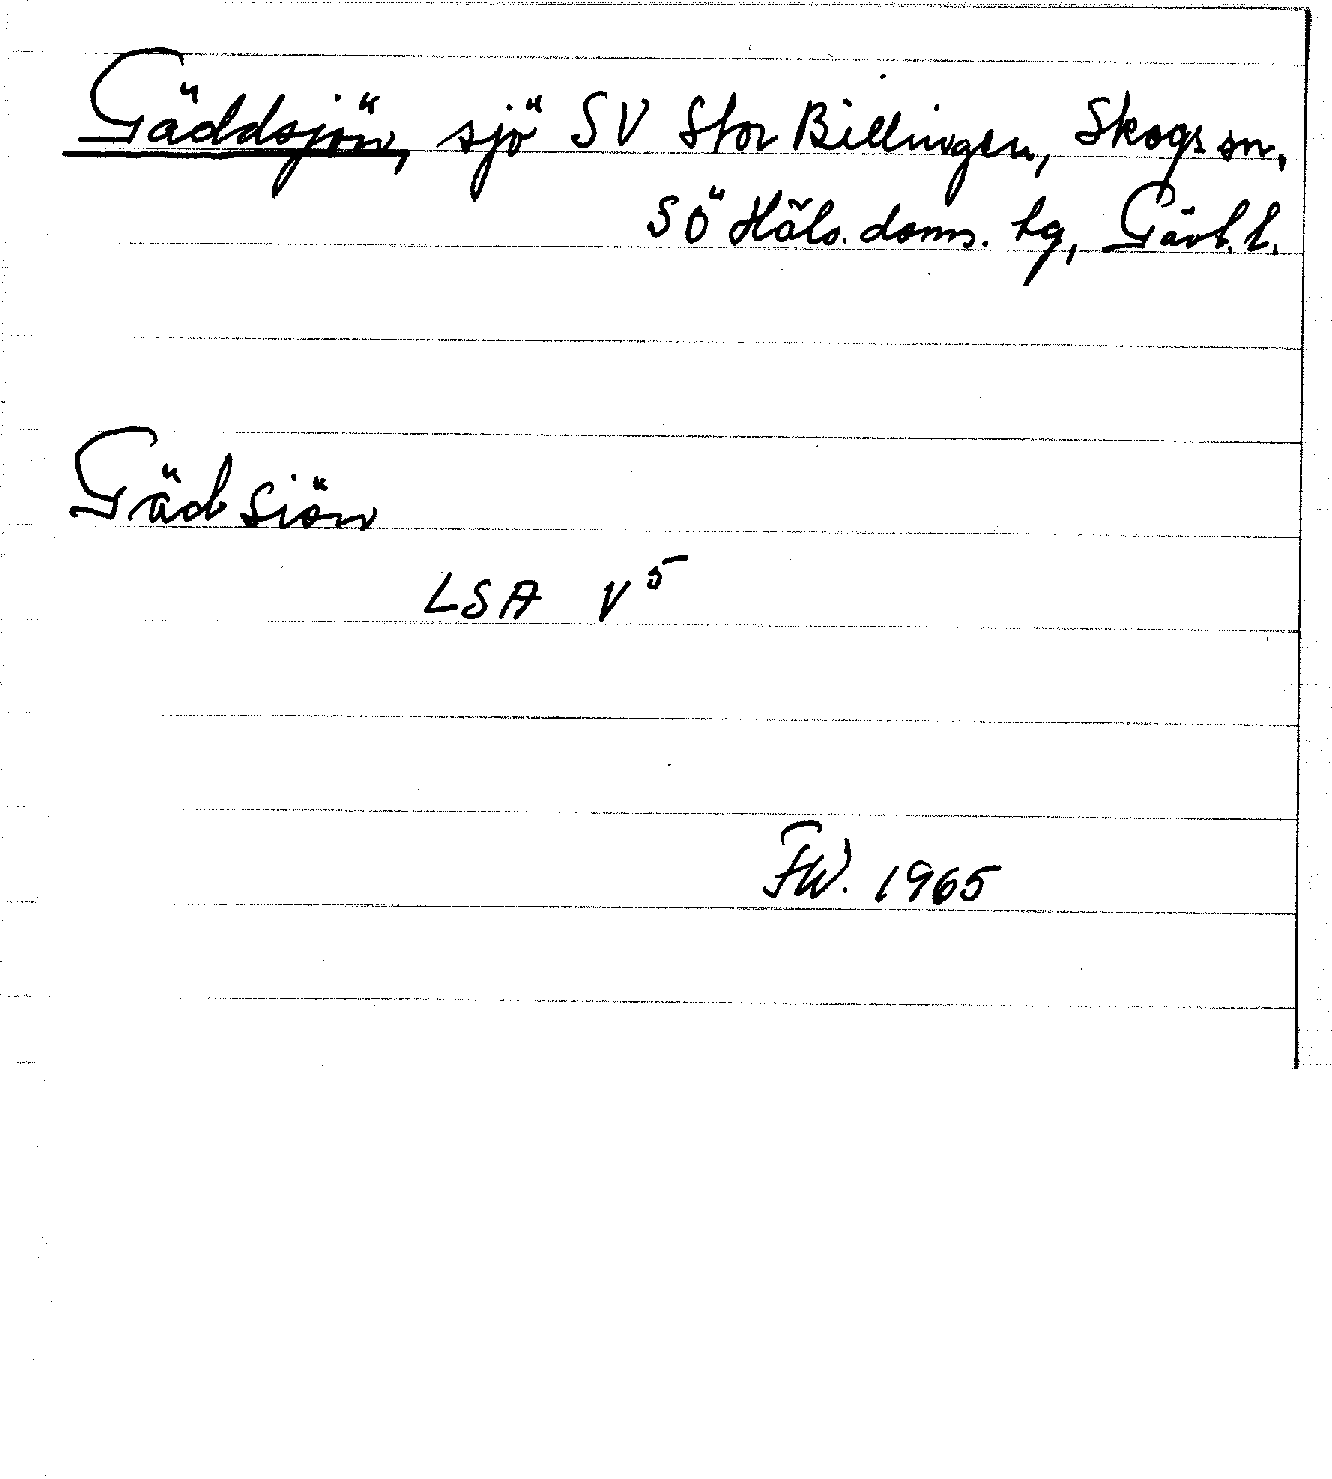 Gäddsjön, sjö SV Stor Billingen, Skogs sn,
SÖ Häls. doms. tg, Gävl. l.
Gäd Siön
LSA V⁵
FW. 1965